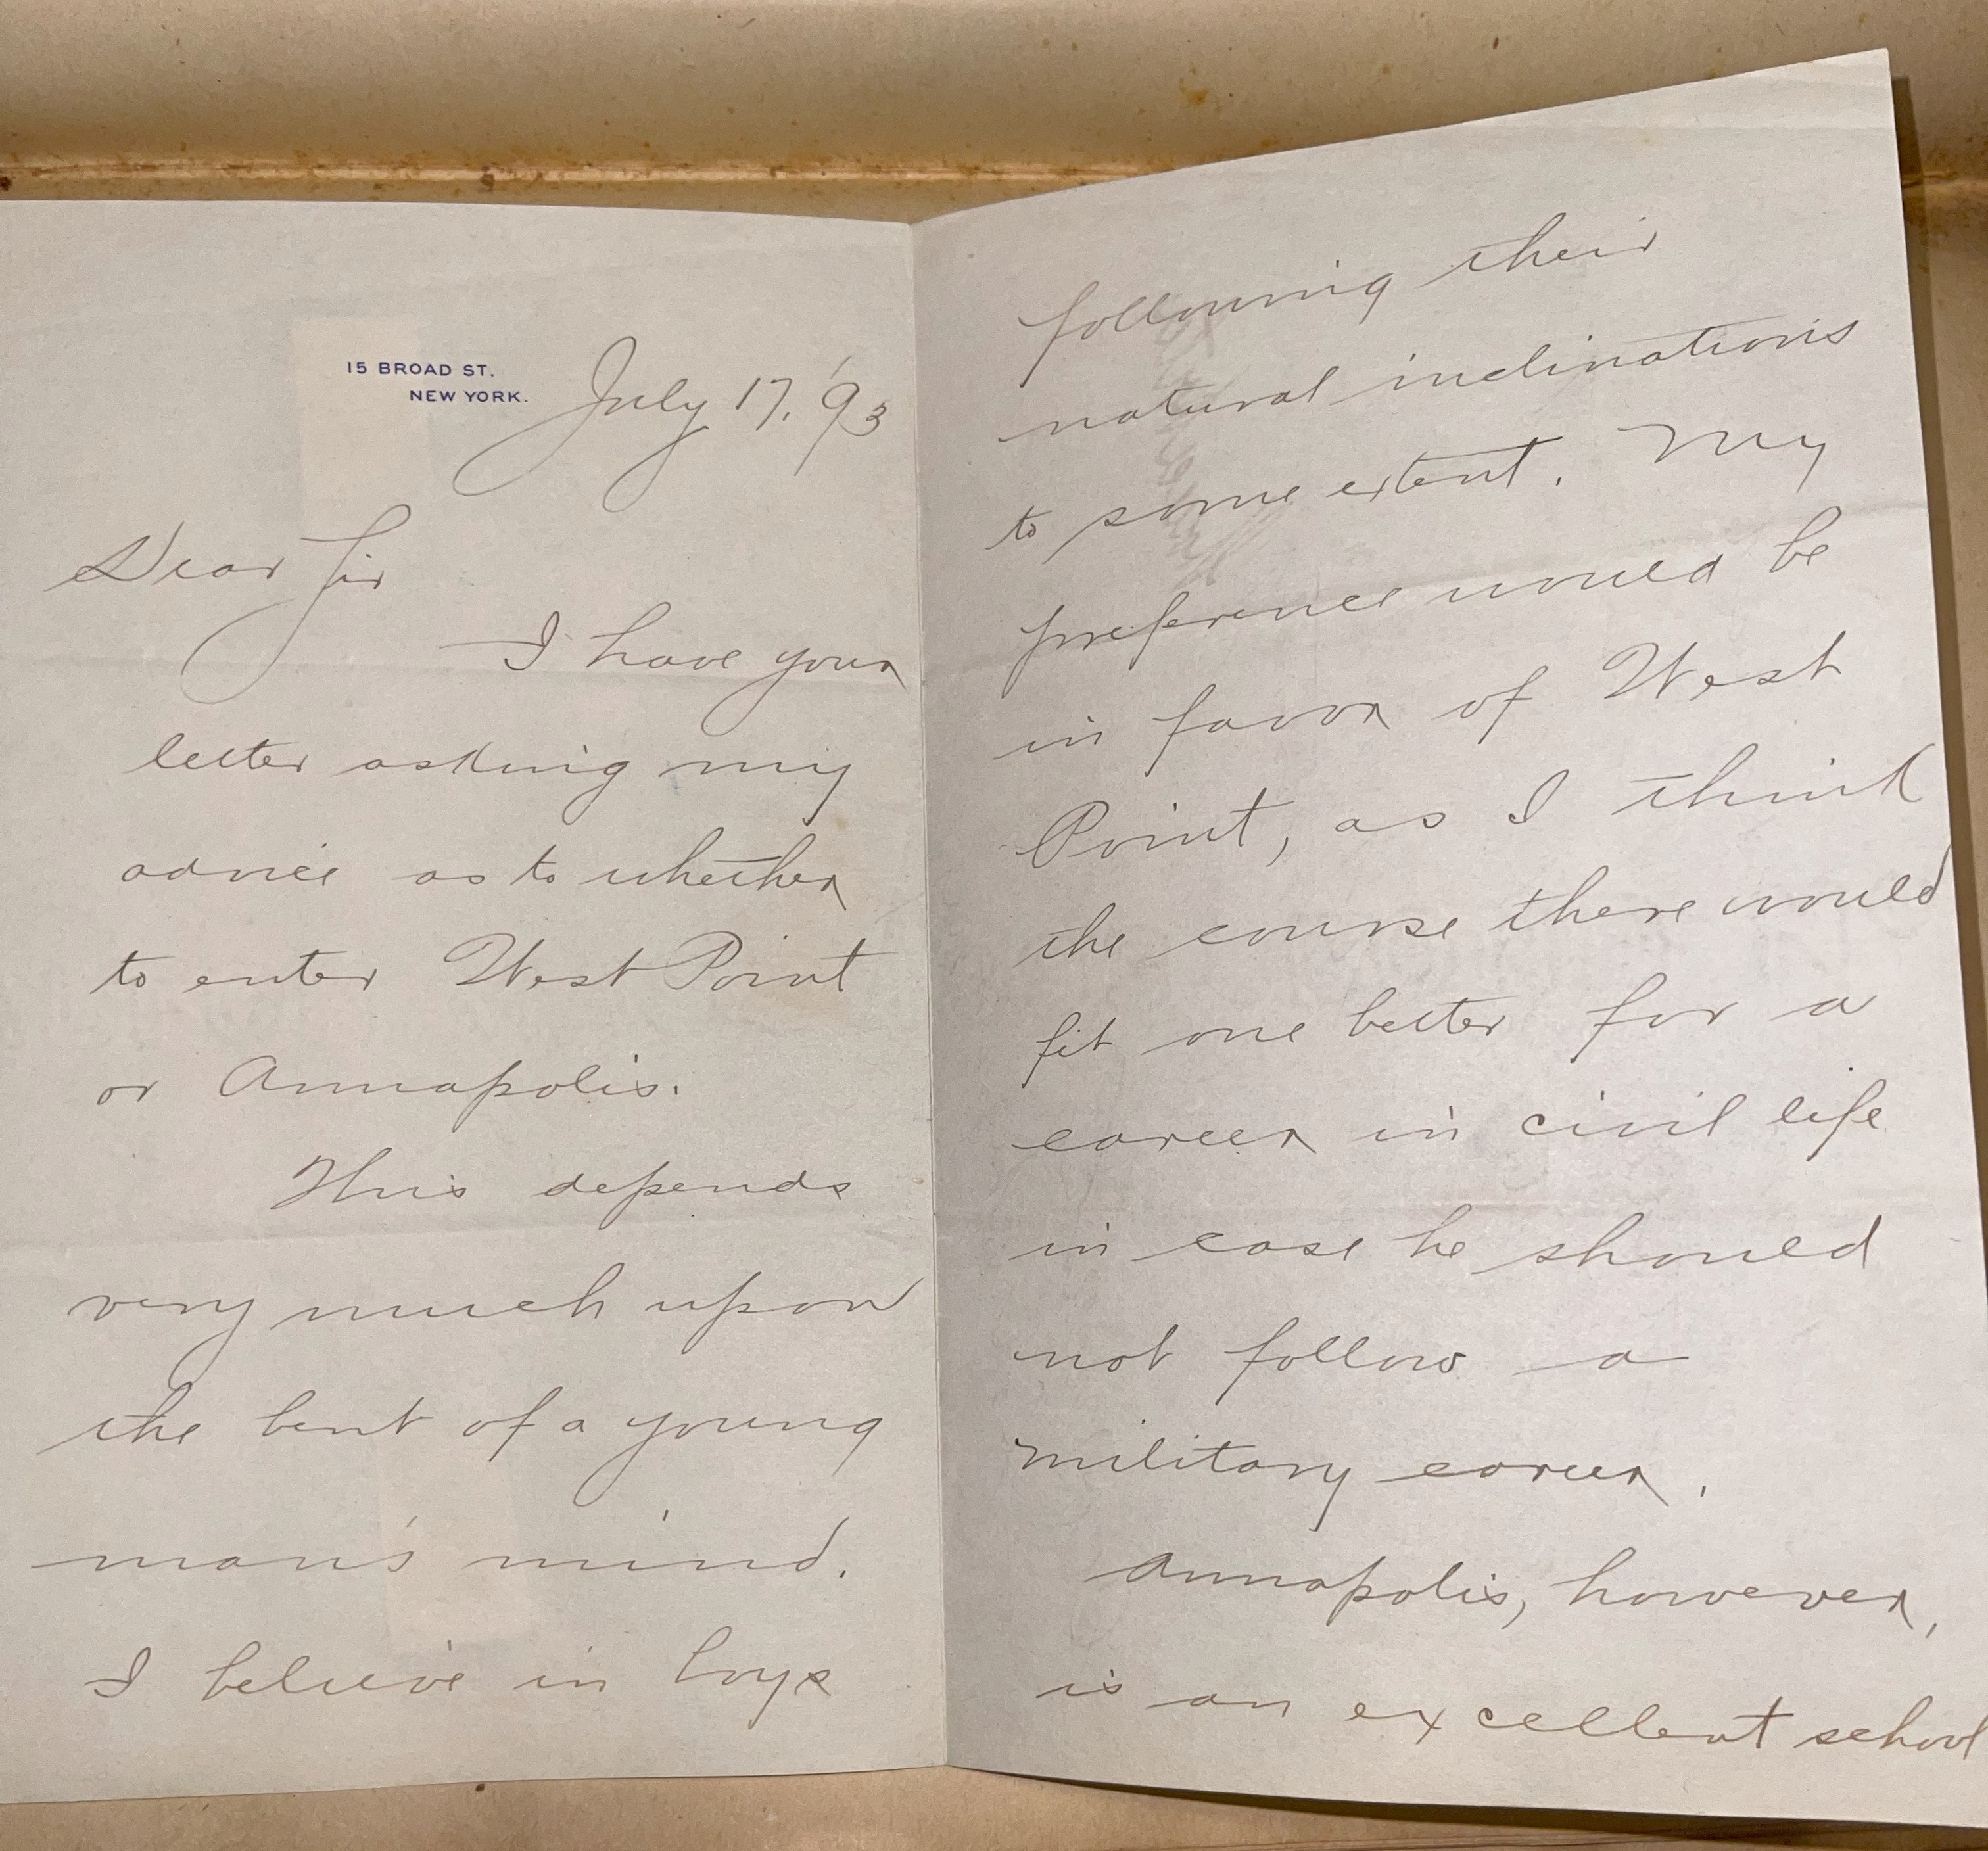 15 BROAD ST.
NEW YORK.
July 17, '93
Dear Sir
I have your
letter asking my
advice as to whether
to enter West Point
or Annapolis.
This depends
very much upon
the bent of a young
man's mind.
I believe in boys
following their
natural inclinations
to some extent. My
preference would be
in favor of West
Point, as I think
the course there would
fit one better for a
career in civil life
in case he should
not follow a
military career.
Annapolis, however,
is an excellent school